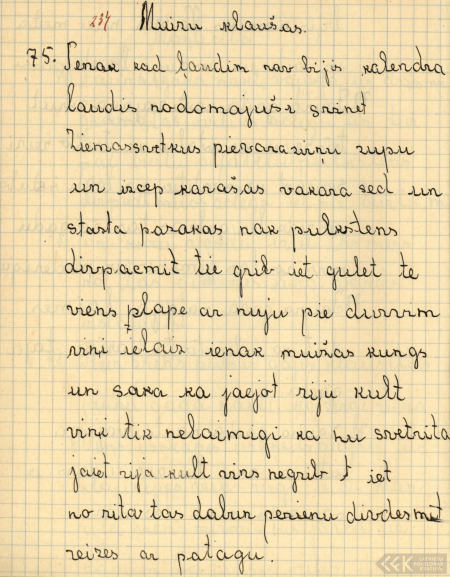 237
Muižu klaušas.
75. Senak kad ļaudim nav bijis kalendra
laudis nodomajuši svinet
Ziemassvetkus pievara zirņu zupu
un izcep karašas vakara sed un
stasta pasakas nak pulkstens
divpacmit tie grib iet gulet te
viens plape ar nuju pie durvim
viņi ielaiz ienak muižas kungs
un saka ka jaejot riju kult
viņi tik nelaimigi ka nu svetrita
jaiet rija kult virs negrib iet
no rita tas dabun perienu divdesmit
reizes ar patagu.
LATVIEŠU
FOLKLORAS
KRĀTUVE